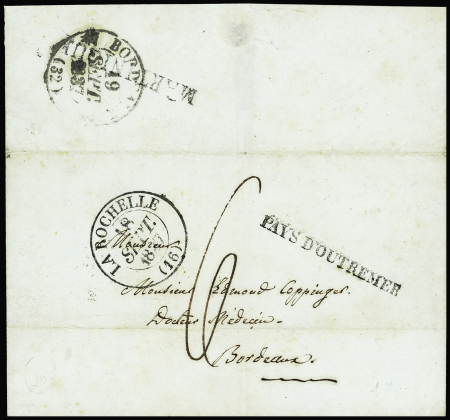 BORD
19
SEPT.
(32)
LA ROCHELLE
18
SEPT.
(16)
PAYS D'OUTREMER
6
Monsieur
Monsieur Edmond Coppinger.
Docteur Médecin.
Bordeaux.